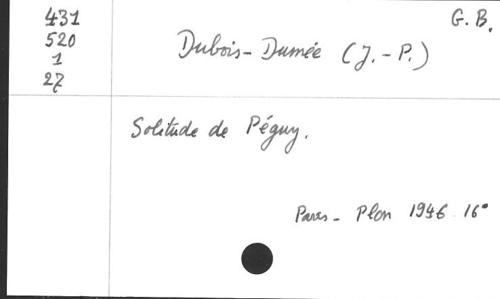 431
520
1
27
G. B.
Dubois-Dumée (J.-P.)
Solitude de Péguy.
Paris - Plon 1946 16°